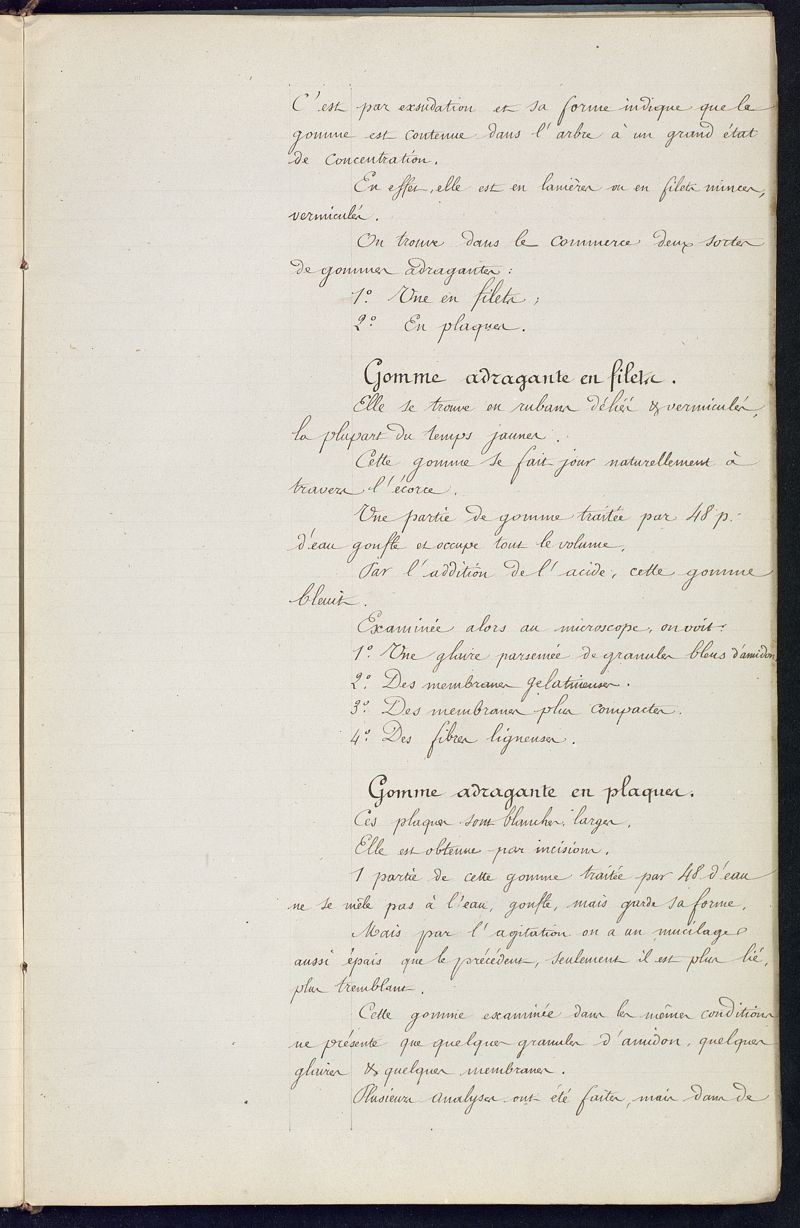 C'est par exsudation et sa forme indique que la
gomme est contenue dans l'arbre à un grand état
de concentration.
En effet, elle est en lanières ou en filets minces,
vermiculés.
On trouve dans le commerce deux sortes
de gommes adragantes :
1º Une en filets ;
2º En plaques.
Gomme adragante en filets.
Elle se trouve en rubans déliés & vermiculés,
la plupart du temps jaunes.
Cette gomme se fait jour naturellement à
travers l'écorce.
Une partie de gomme traitée par 48 p.
d'eau gonfle et occupe tout le volume.
Par l'addition de l'acide, cette gomme
bleuit.
Examinée alors au microscope, on voit :
1º Une glaire parsemée de granules bleus d'amidon
2º Des membranes gelatineuses.
3º Des membranes plus compactes.
4º Des fibres ligneuses.
Gomme adragante en plaques.
Ces plaques sont blanches, larges.
Elle est obtenue par incisions.
1 partie de cette gomme traitée par 48 d'eau
ne se mêle pas à l'eau, gonfle, mais garde sa forme.
Mais par l'agitation on a un mucilage
aussi épais que le précédent, seulement il est plus lié,
plus tremblant.
Cette gomme examinée dans les mêmes conditions
ne présente que quelques granules d'amidon, quelques
glaires & quelques membranes.
Plusieurs analyses ont été faites, mais dans de